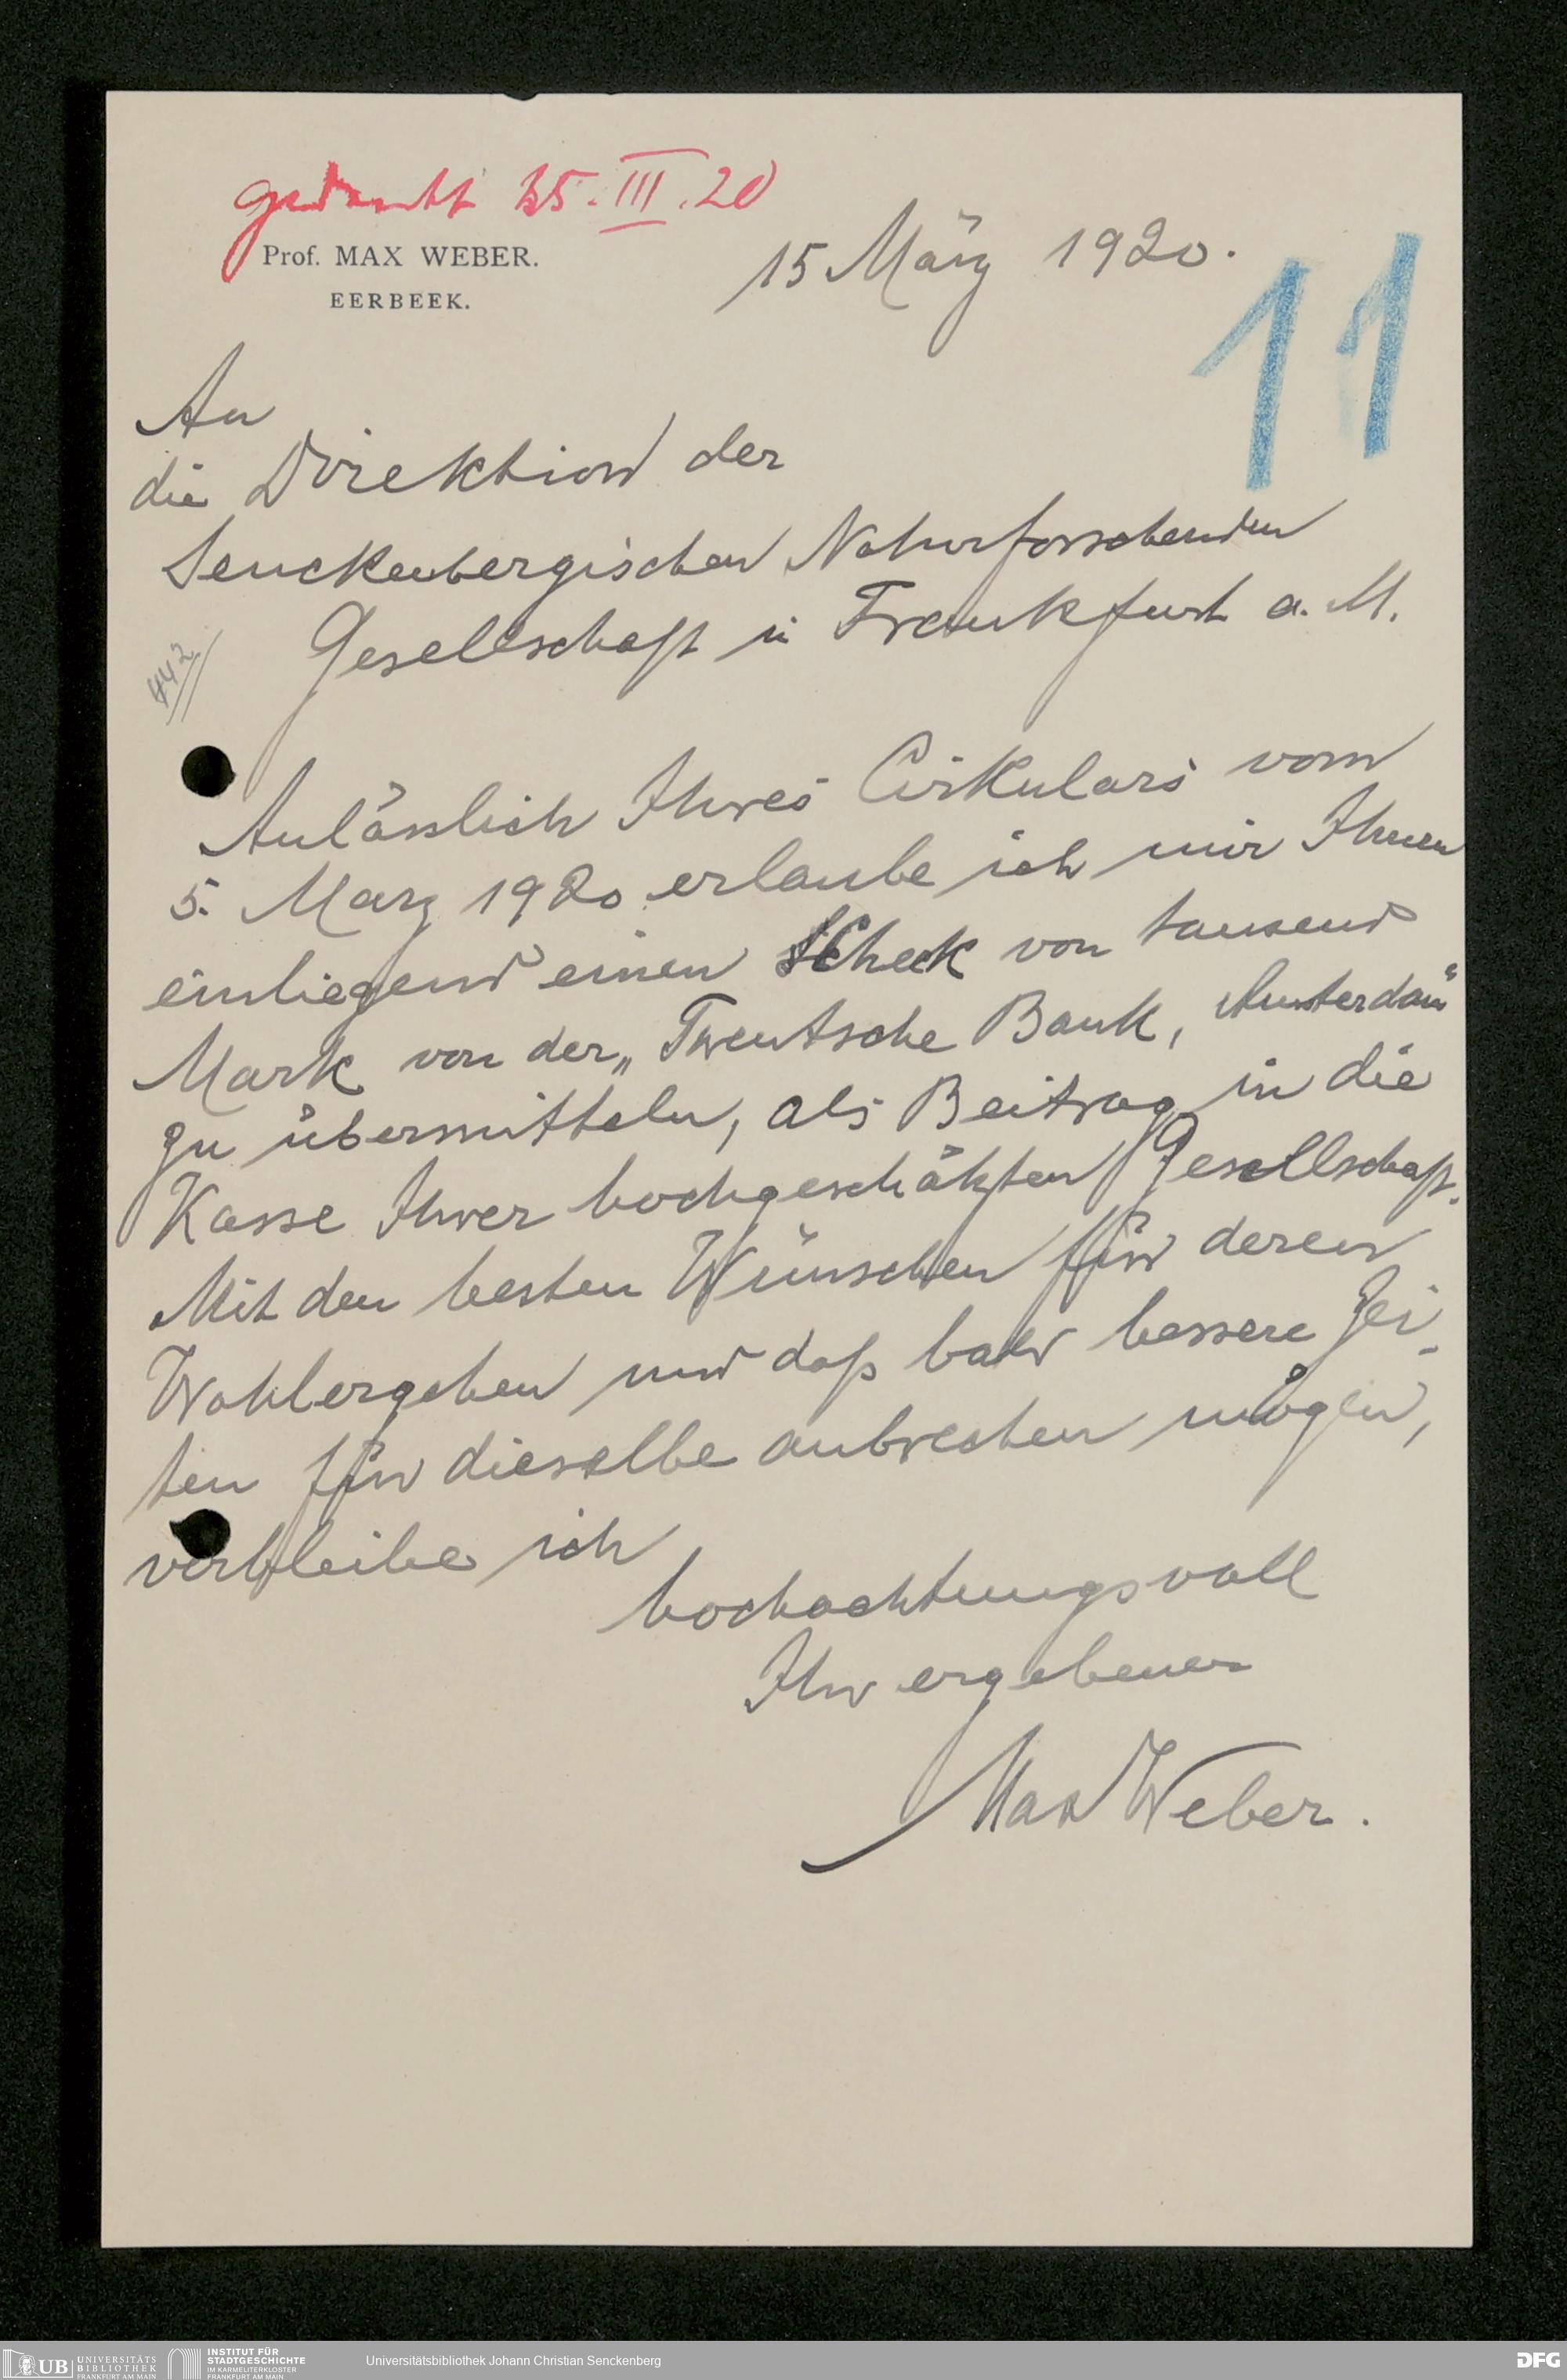 gedankt 25. III. 20
Prof. MAX WEBER.
EERBEEK.
15 März 1920.
11
An
die Direktion der
Senckenbergischen Naturforschenden
Gesellschaft in Frankfurt a. M.
442
Anlässlich Ihres Cirkulars vom
5. März 1920 erlaube ich mir Ihnen
einliegend einen Check von tausend
Mark von der „Twentsche Bank, Amsterdam“
zu übermitteln, als Beitrag in die
Kasse Ihrer hochgeschätzten Gesellschaft.
Mit den besten Wünschen für deren
Wohlergehen und daß bald bessere Zei-
ten für dieselbe anbrechen mögen,
verbleibe ich
hochachtungsvoll
Ihr ergebener
Max Weber.
UB UNIVERSITÄTS
BIBLIOTHEK
FRANKFURT AM MAIN
INSTITUT FÜR
STADTGESCHICHTE
IM KARMELITERKLOSTER
FRANKFURT AM MAIN
Universitätsbibliothek Johann Christian Senckenberg
DFG